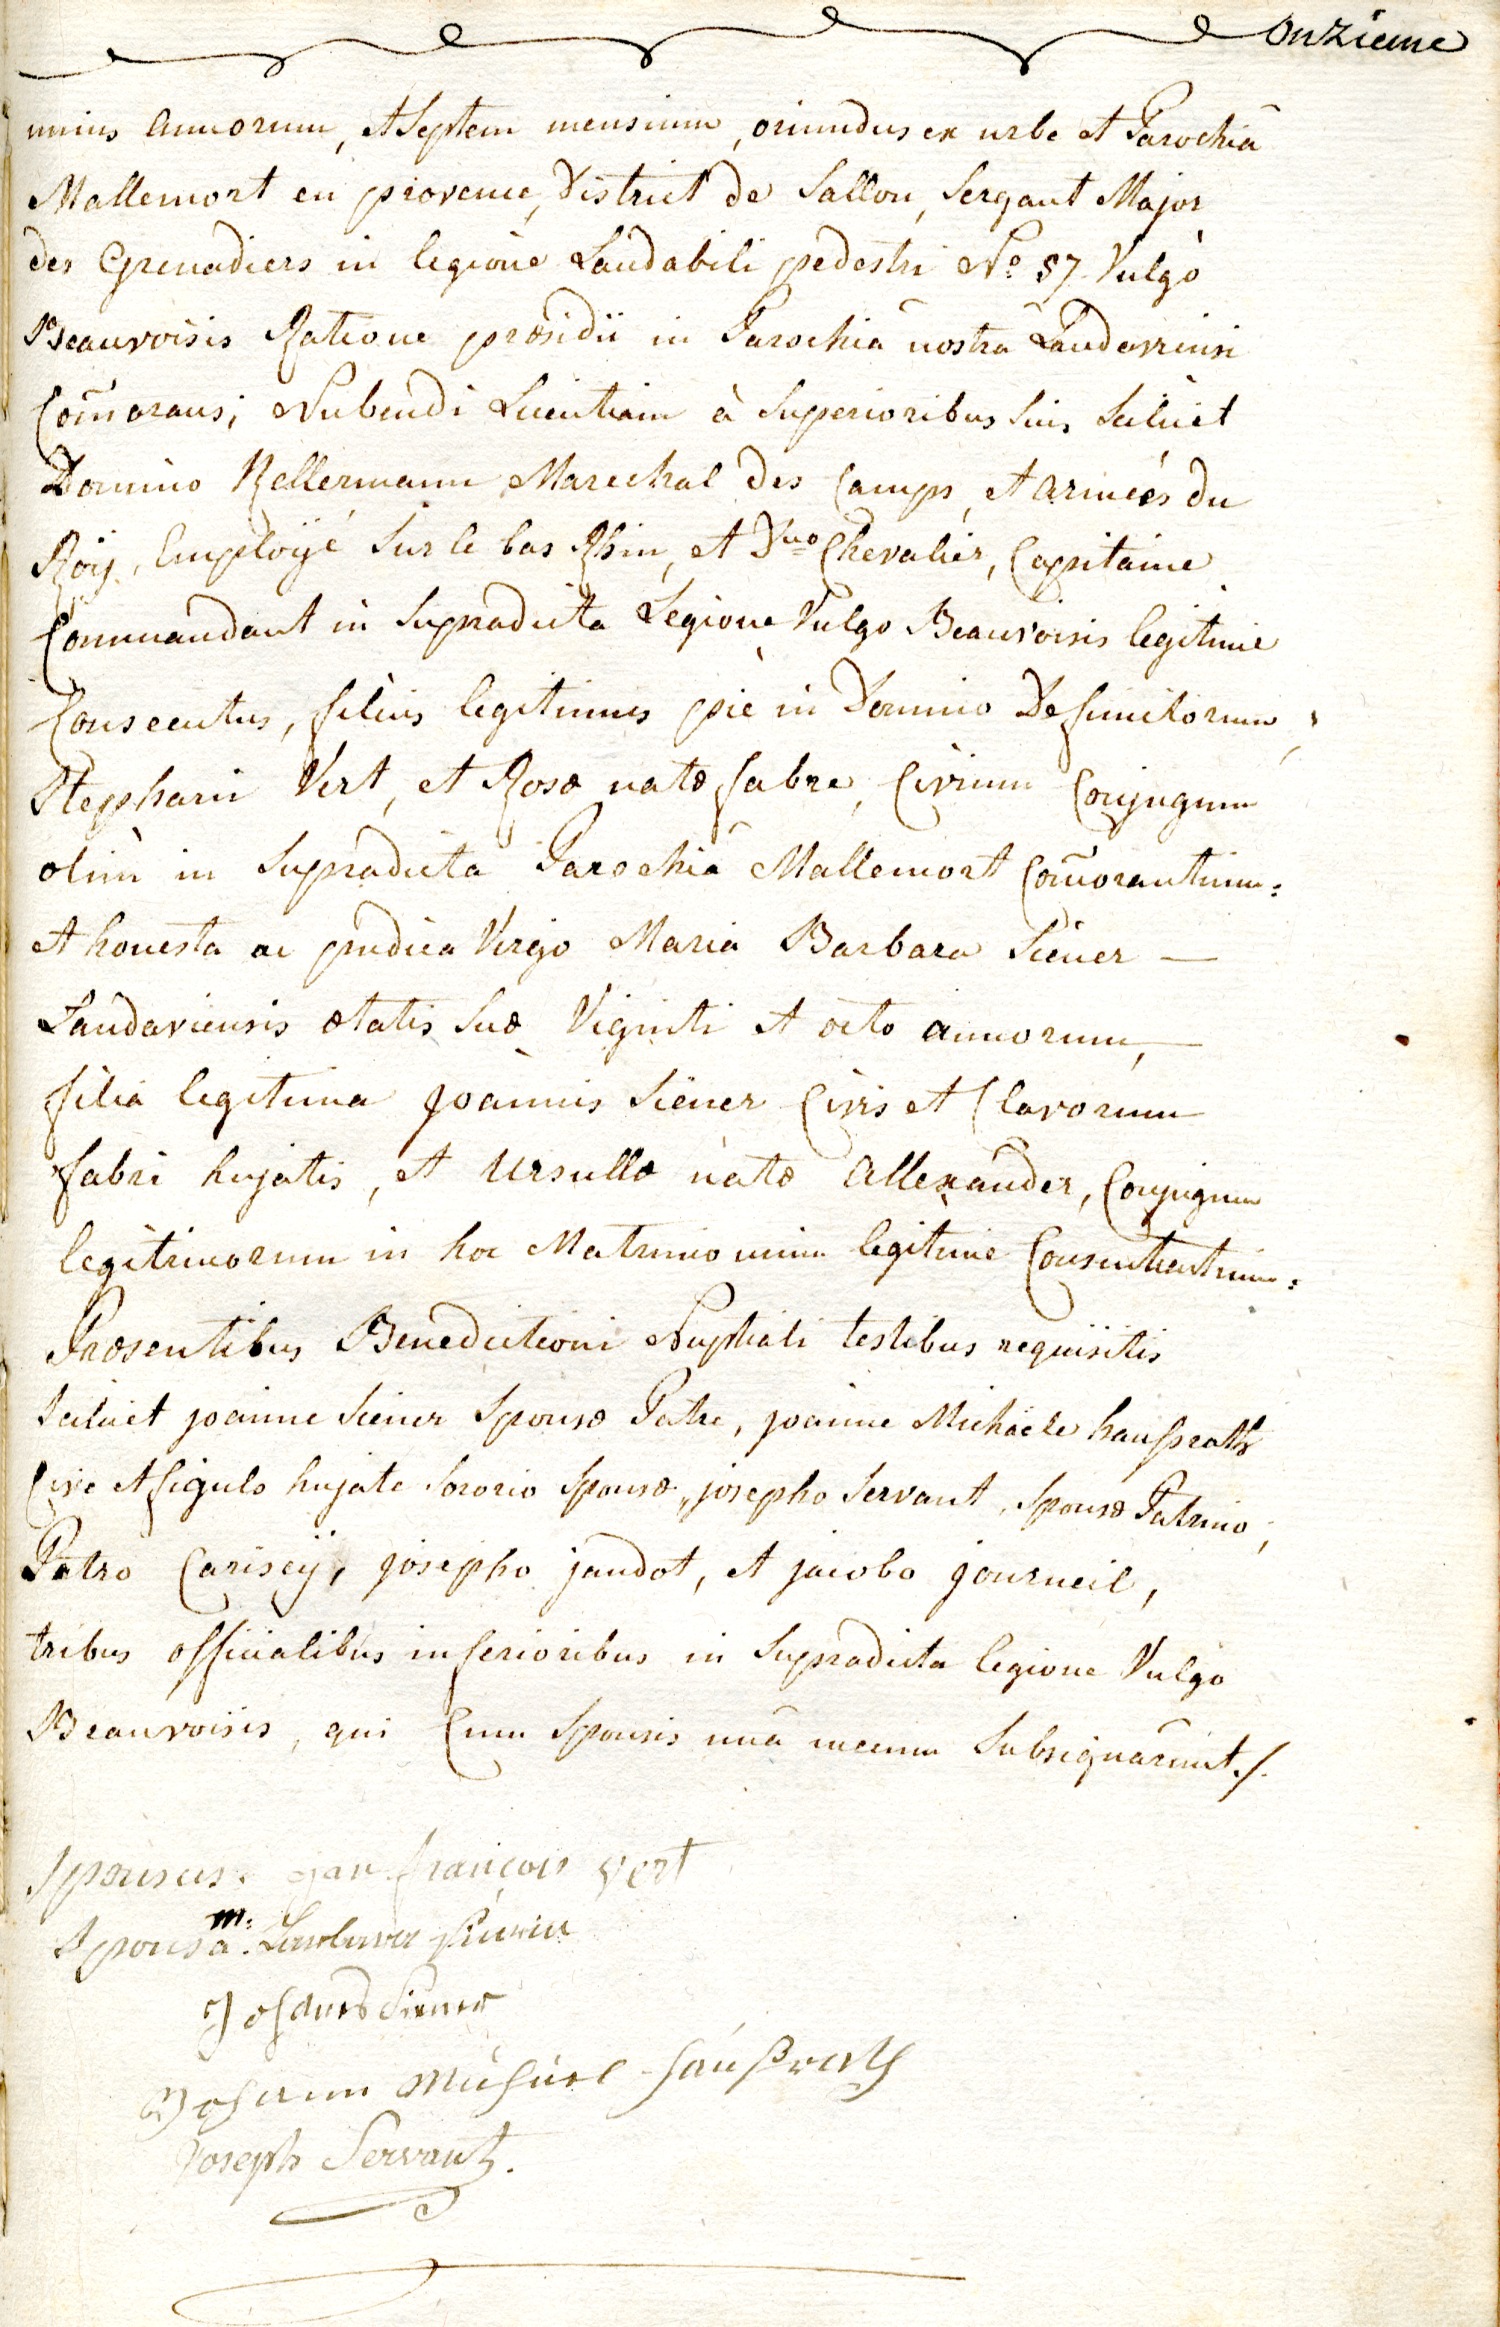 onzieme
unius annorum, et Septem mensium, oriundus ex urbe et Parochiâ
Mallemort en provence, District de Sallon, Sergant Major
des Grenadiers in legione Laudabili pedestri N.º 57 Vulgò
Beauvoisis Ratione præsidii in Parochiâ nostrâ Landaviensi
Com̄orans; Nubendi Licentiam à Superioribus suis scilicet
Domino Kellermann Marechal des Camps, et Armées du
Roÿ, Employé sur le bas Rhin, et Dno Chevalier, Capitaine
Commandant in Supradicta Legione Vulgo Beauvoisis legitimè
Consecutus, filius legitimus piè in Domino Defunctorum,
Stephani Vert, et Rosæ natæ fabre, Civium Conjugum
olim in Supradicta Parochiâ Mallemort Com̄orantium:
et honesta ac pudica Virgo Maria Barbara Siener —
Landaviensis ætatis suæ Viginti et octo annorum, —
filia legitima Joannis Siener Civis et Clavorum
fabri hujatis, et Ursullæ natæ Allexander, Conjugum
legitimorum in hoc Matrimonium legitimè Consentientium:
Præsentibus Benedictioni Nuptiali testibus requisitis
scilicet joanne Siener Sponsæ Patre, joanne Michaele haußrath
Cive et figulo hujate Sororio Sponsæ, josepho Servant, Sponsæ Patrino,
Petro Cariseÿ, josepho jandot, et jacobo journeil,
tribus officialibus inferioribus in Supradicta legione Vulgo
Beauvoisis, qui Cum Sponsis unâ mecum Subsignârunt./.
Sponsus. jan françois vert
Sponsa. m: Barbara Sienerin
Johannes Siener
Johann Michael Haußrath
Joseph Servant.